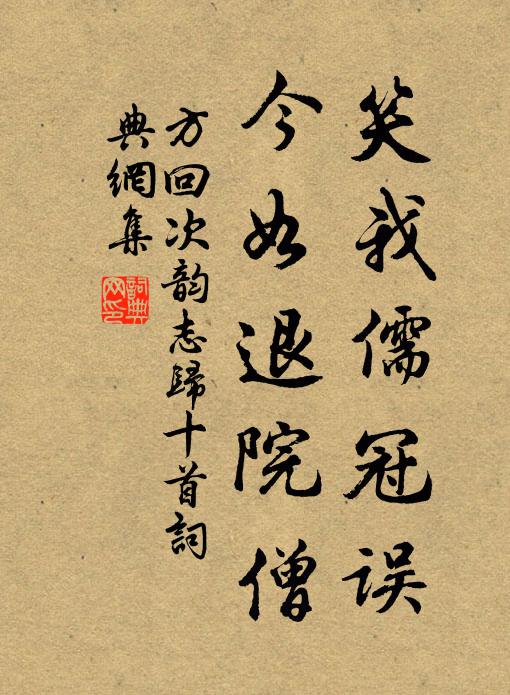 笑我儒冠误
今如退院僧
方回次韵志歸十首詞
典網集
詞典网印